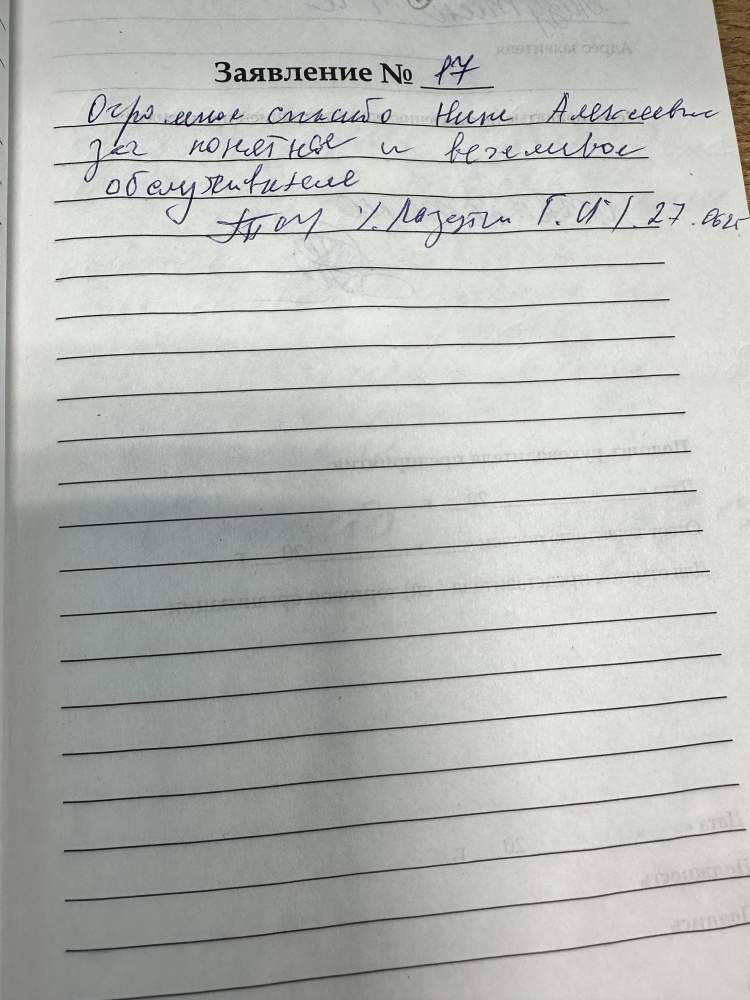 Заявление № 17
Огромное спасибо Нине Алексеевне
за понятное и вежливое
обслуживание
Г. И /. 27.06.25